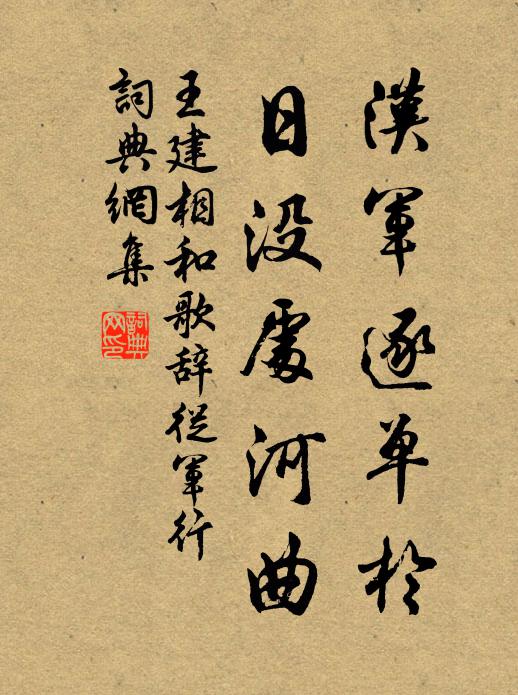 漢軍逐单於
日没處河曲
王建相和歌辞從軍行
詞典網集
詞典
网印